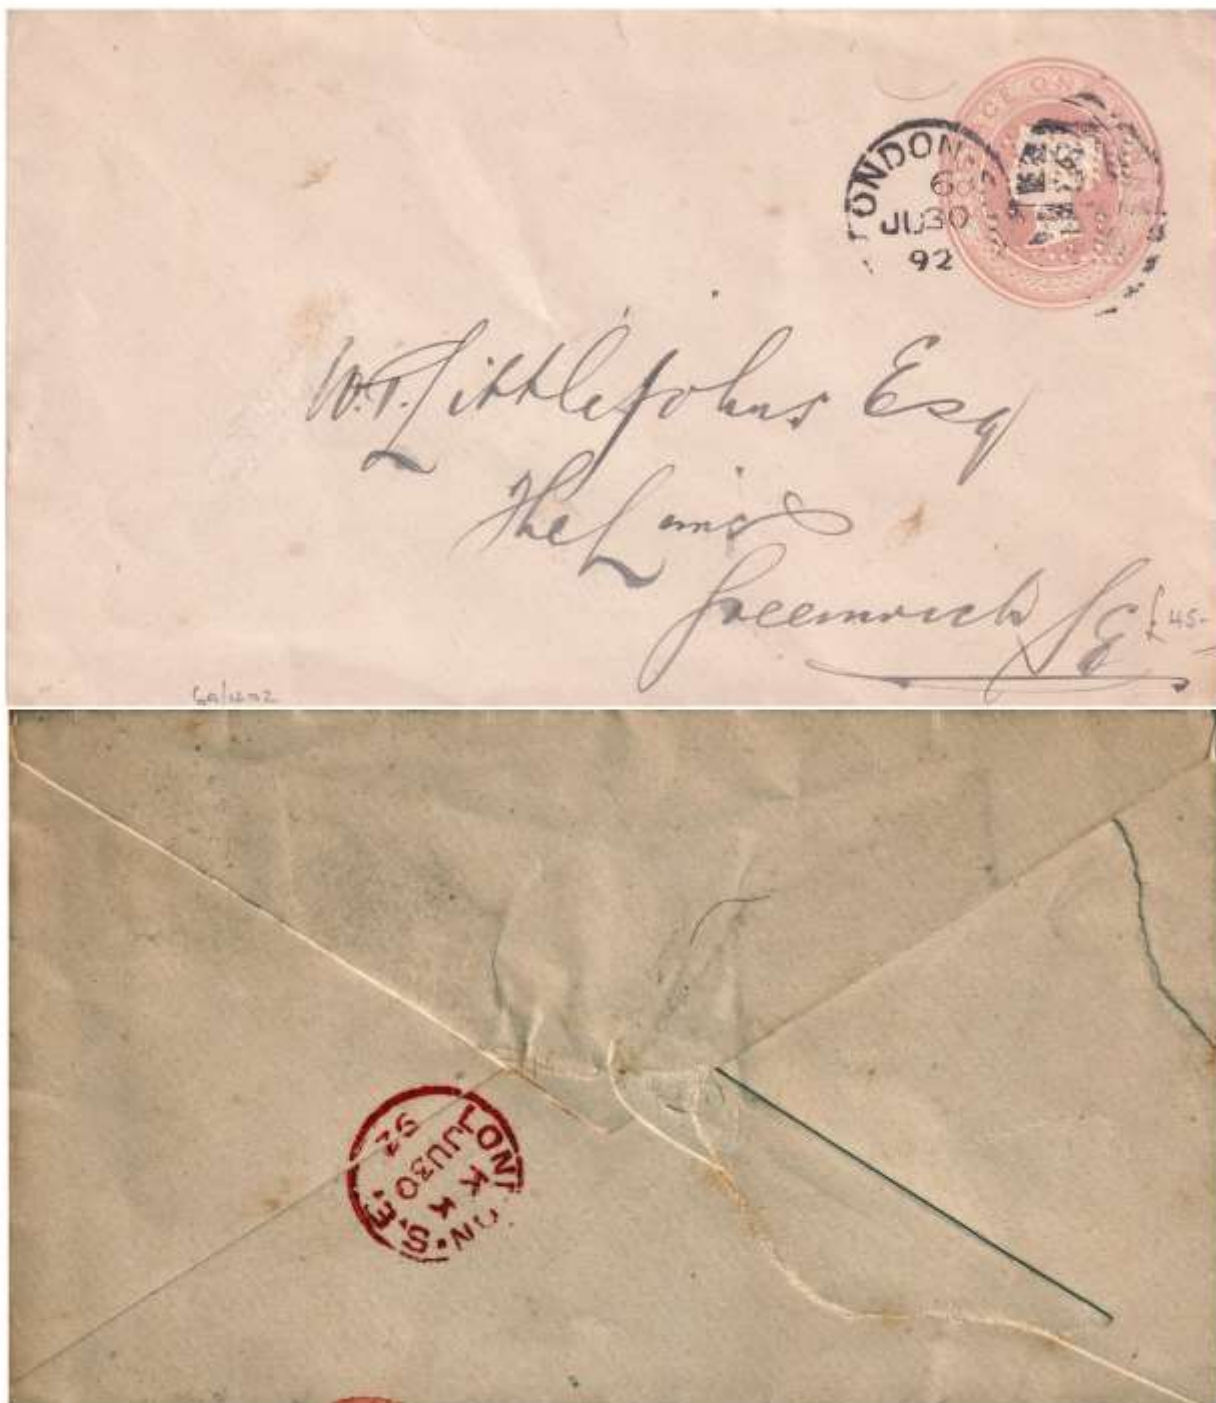 LONDON
68
JU30
92
W. T. Littlejohns Esq
The Limes
Greenwich SE
£45-
LONDON.S.E.
K K
JU30
92